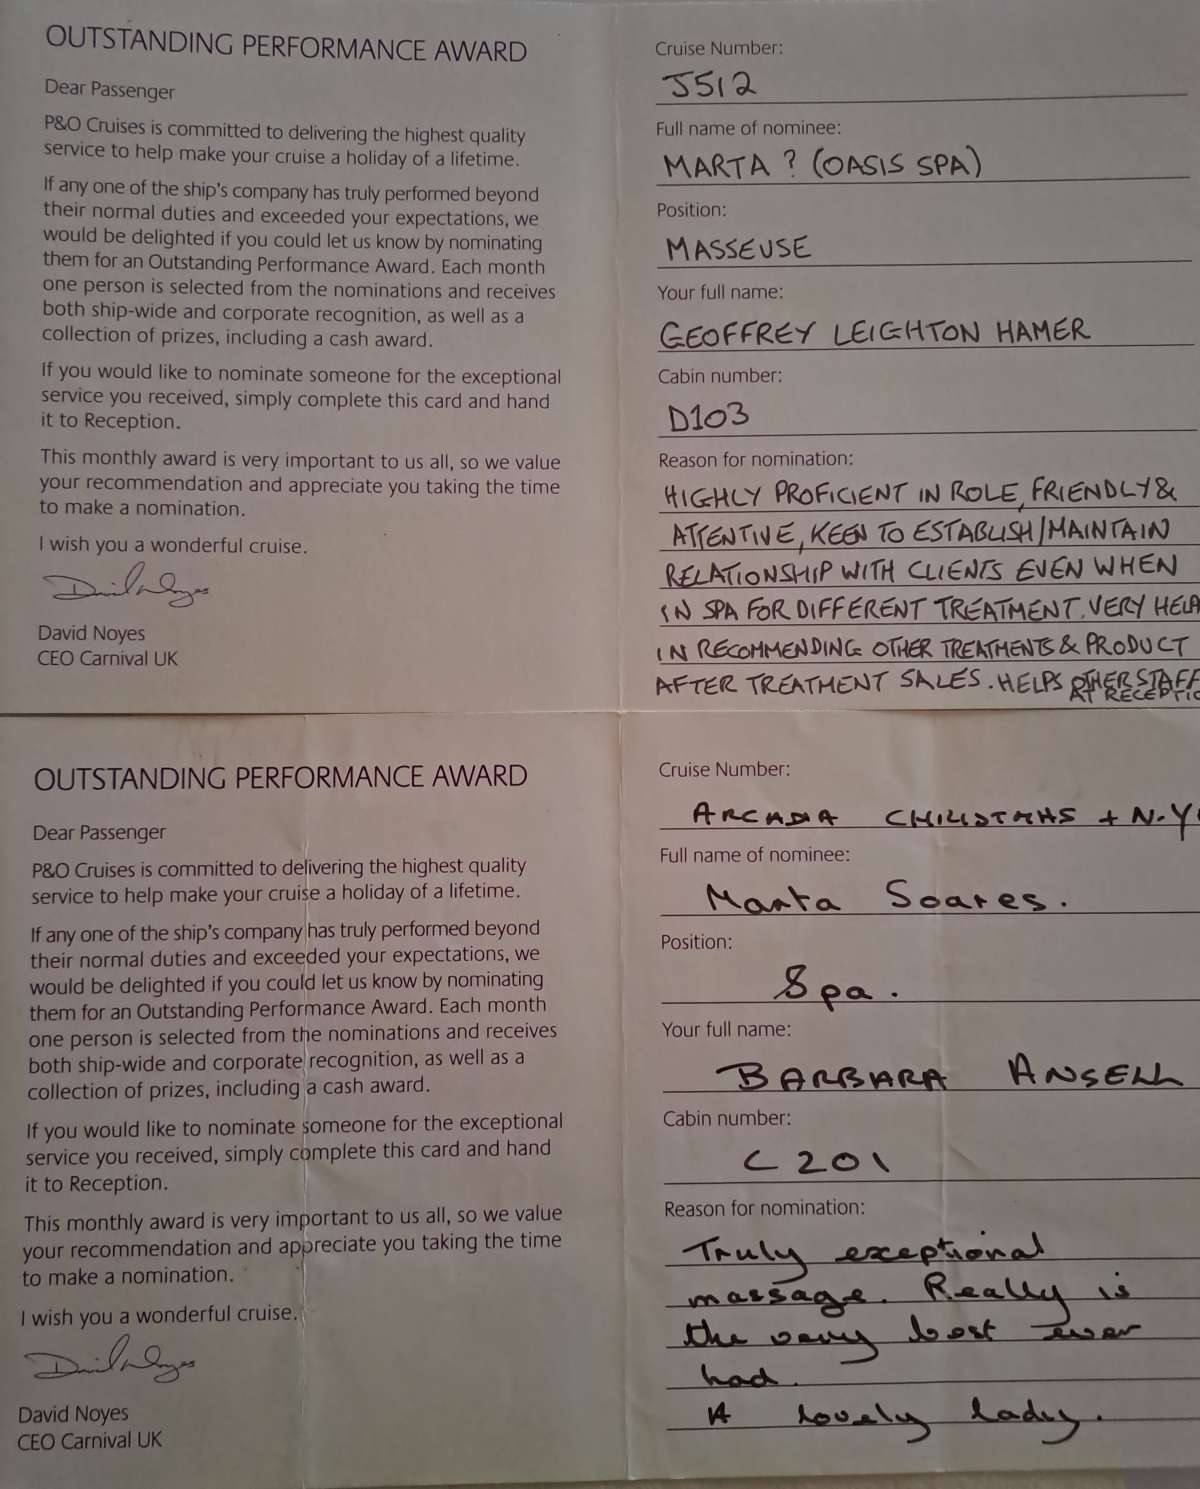 OUTSTANDING PERFORMANCE AWARD
Dear Passenger
P&O Cruises is committed to delivering the highest quality
service to help make your cruise a holiday of a lifetime.
If any one of the ship's company has truly performed beyond
their normal duties and exceeded your expectations, we
would be delighted if you could let us know by nominating
them for an Outstanding Performance Award. Each month
one person is selected from the nominations and receives
both ship-wide and corporate recognition, as well as a
collection of prizes, including a cash award.
If you would like to nominate someone for the exceptional
service you received, simply complete this card and hand
it to Reception.
This monthly award is very important to us all, so we value
your recommendation and appreciate you taking the time
to make a nomination.
I wish you a wonderful cruise.
David Noyes
David Noyes
CEO Carnival UK
Cruise Number:
J512
Full name of nominee:
MARTA ? (OASIS SPA)
Position:
MASSEUSE
Your full name:
GEOFFREY LEIGHTON HAMER
Cabin number:
D103
Reason for nomination:
HIGHLY PROFICIENT IN ROLE, FRIENDLY &
ATTENTIVE, KEEN TO ESTABLISH/MAINTAIN
RELATIONSHIP WITH CLIENTS EVEN WHEN
IN SPA FOR DIFFERENT TREATMENT. VERY
IN RECOMMENDING OTHER TREATMENTS & PRODUCT
AFTER TREATMENT SALES. HELPS OTHER STAFF
AT
OUTSTANDING PERFORMANCE AWARD
Dear Passenger
P&O Cruises is committed to delivering the highest quality
service to help make your cruise a holiday of a lifetime.
If any one of the ship's company has truly performed beyond
their normal duties and exceeded your expectations, we
would be delighted if you could let us know by nominating
them for an Outstanding Performance Award. Each month
one person is selected from the nominations and receives
both ship-wide and corporate recognition, as well as a
collection of prizes, including a cash award.
If you would like to nominate someone for the exceptional
service you received, simply complete this card and hand
it to Reception.
This monthly award is very important to us all, so we value
your recommendation and appreciate you taking the time
to make a nomination.
I wish you a wonderful cruise.
David Noyes
David Noyes
CEO Carnival UK
Cruise Number:
ARCADIA CHRISTMAS +
Full name of nominee:
Marta Soares.
Position:
Spa.
Your full name:
BARBARA ANSELL
Cabin number:
C201
Reason for nomination:
Truly exceptional
massage. Really is
the very best ever
had.
A lovely lady.